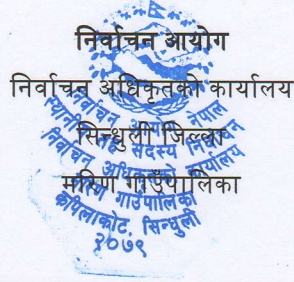 निर्वाचन आयोग
निर्वाचन अधिकृतको कार्यालय
सिन्धुली जिल्ला
मरिण गाउँपालिका
निर्वाचन आयोग नेपाल
स्थानीय तह सदस्य निर्वाचन
निर्वाचन अधिकृतको कार्यालय
मरिण गाउँपालिका
कपिलाकोट, सिन्धुली
२०७९